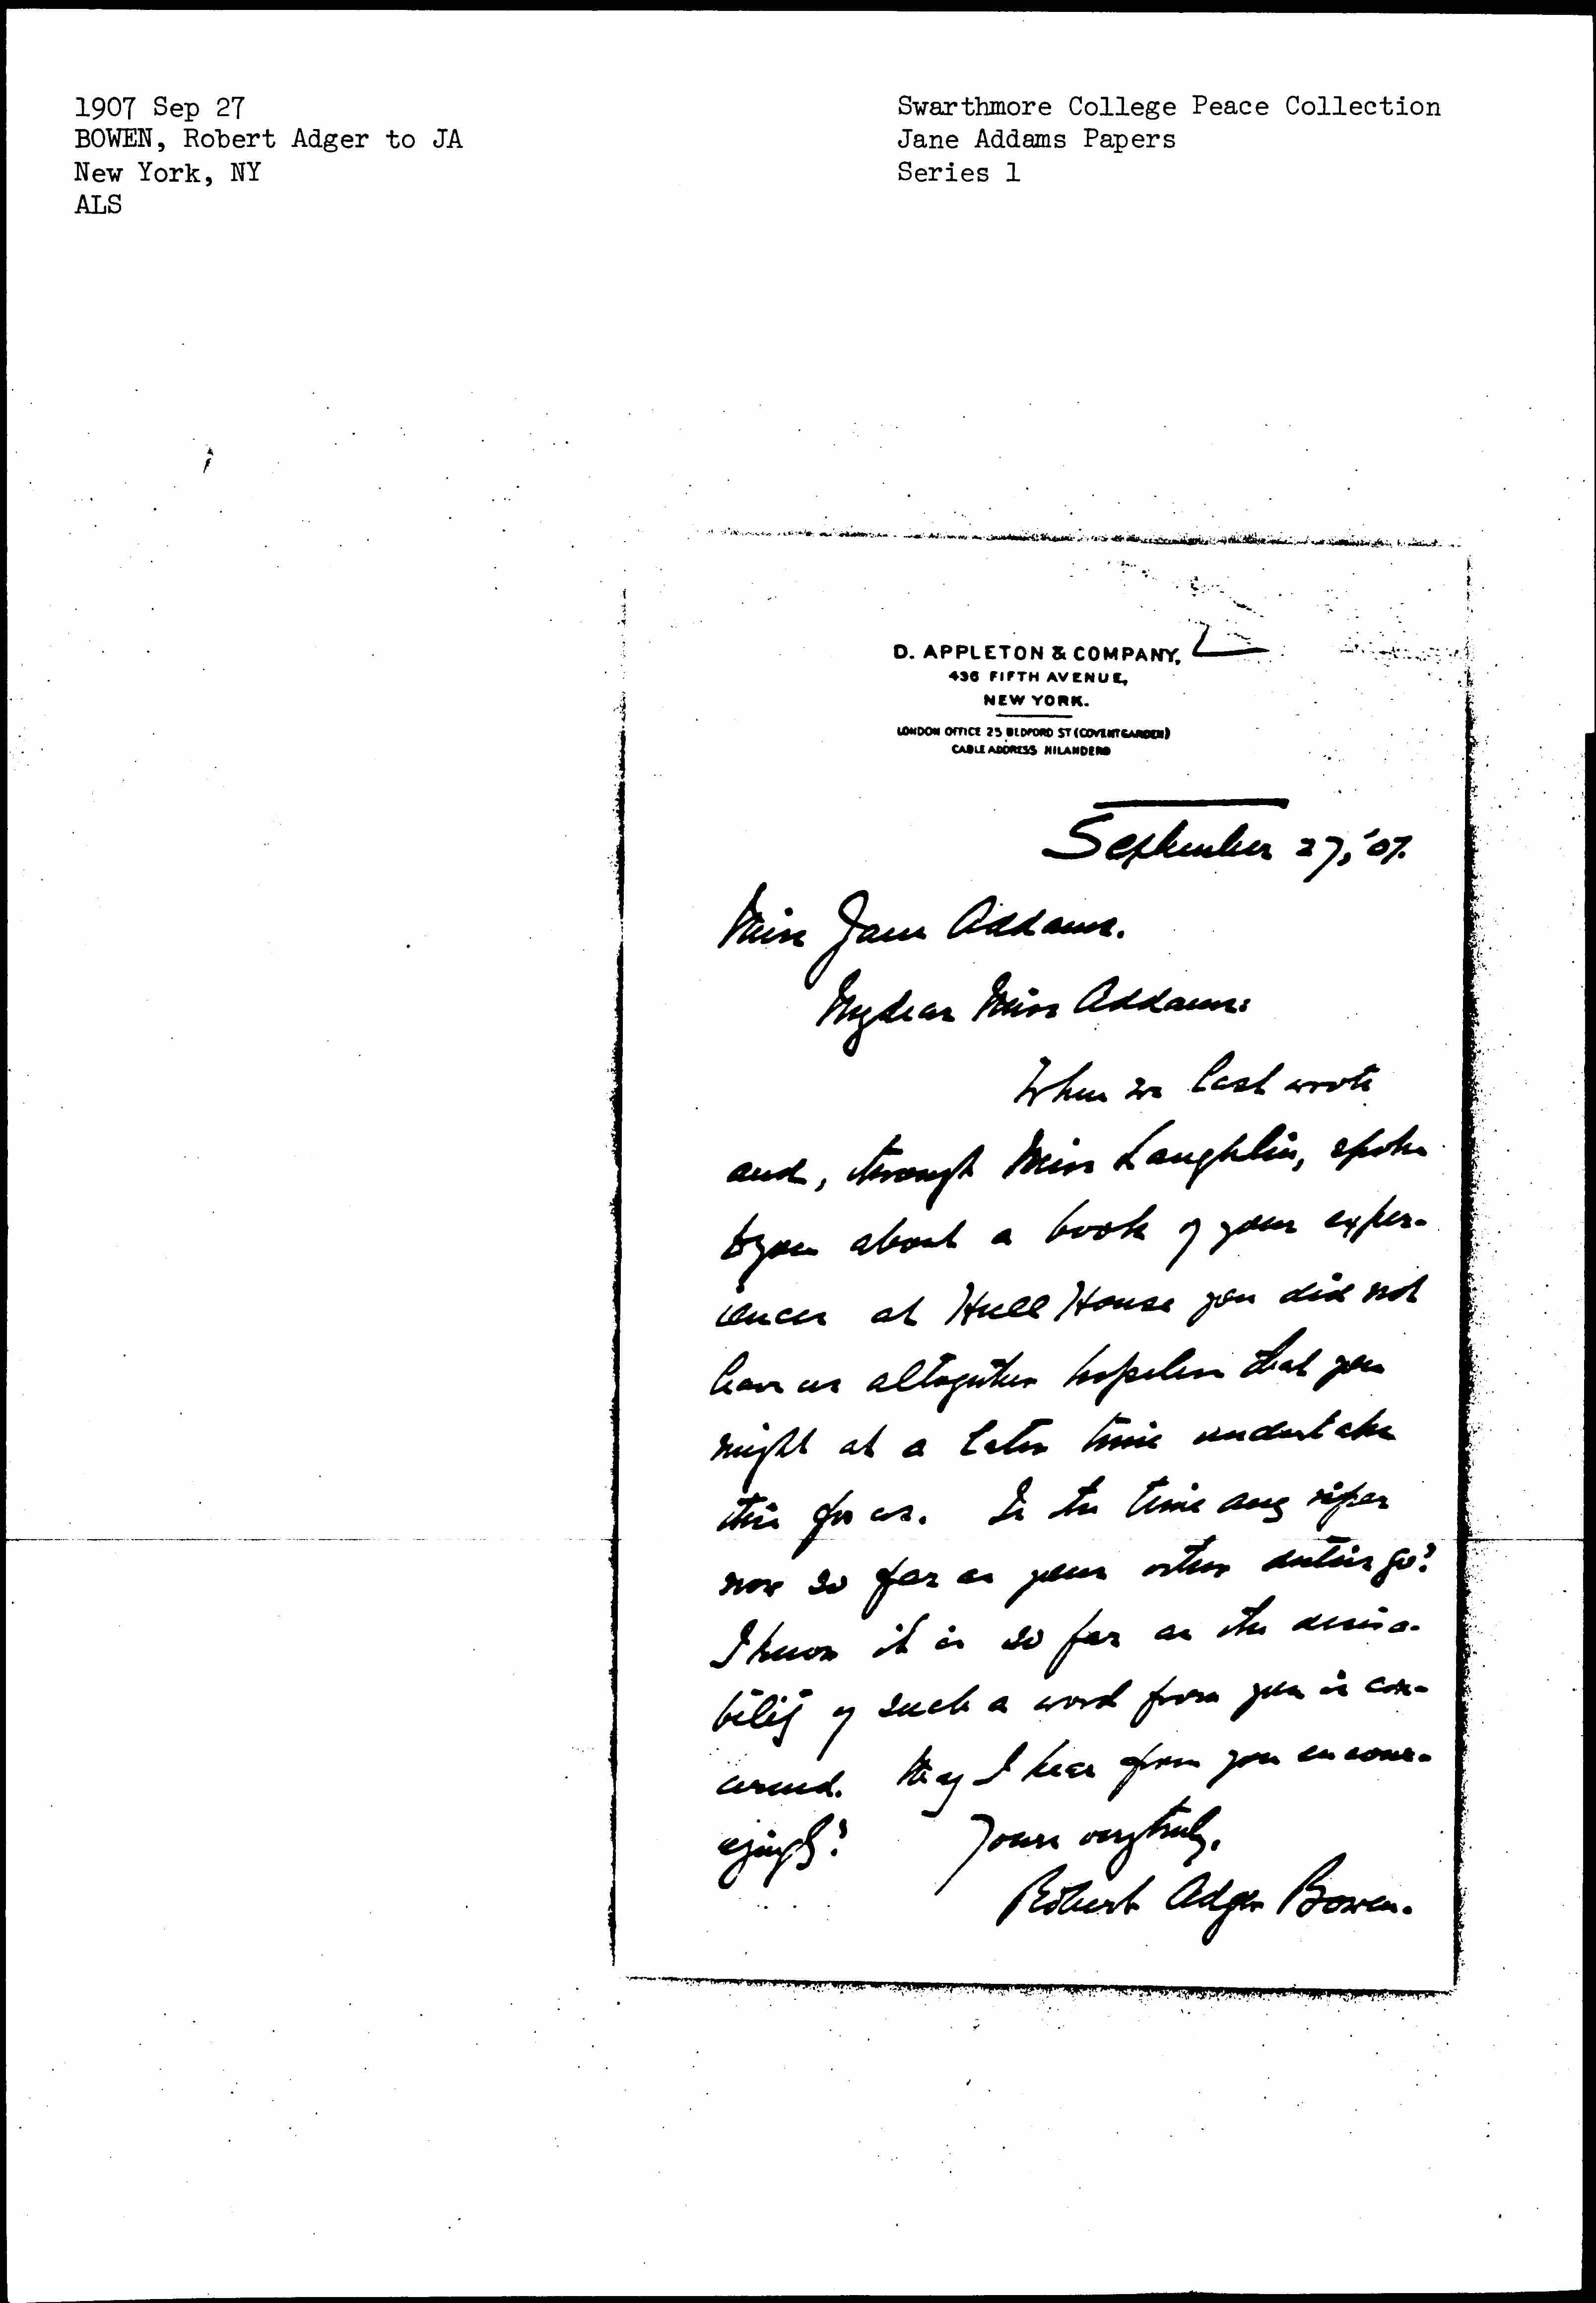 1907 Sep 27
BOWEN, Robert Adger to JA
New York, NY
ALS
Swarthmore College Peace Collection
Jane Addams Papers
Series 1
D. APPLETON & COMPANY,
436 FIFTH AVENUE,
NEW YORK.
LONDON OFFICE 25 BEDFORD ST (COVENT GARDEN)
CABLE ADDRESS NILANDERO
September 27, '07.
Miss Jane Addams.
My dear Miss Addams:
When we last wrote
and, through Miss Laughlin, spoke
to you about a book of your exper-
iences at Hull House you did not
leave us altogether hopeless that you
might at a later time undertake
this for us. Is the time any riper
now so far as your other duties go?
I know it is so far as the desira-
bility of such a word from you is con-
cerned. May I hear from you encour-
agingly?
Yours very truly,
Robert Adger Bowen.